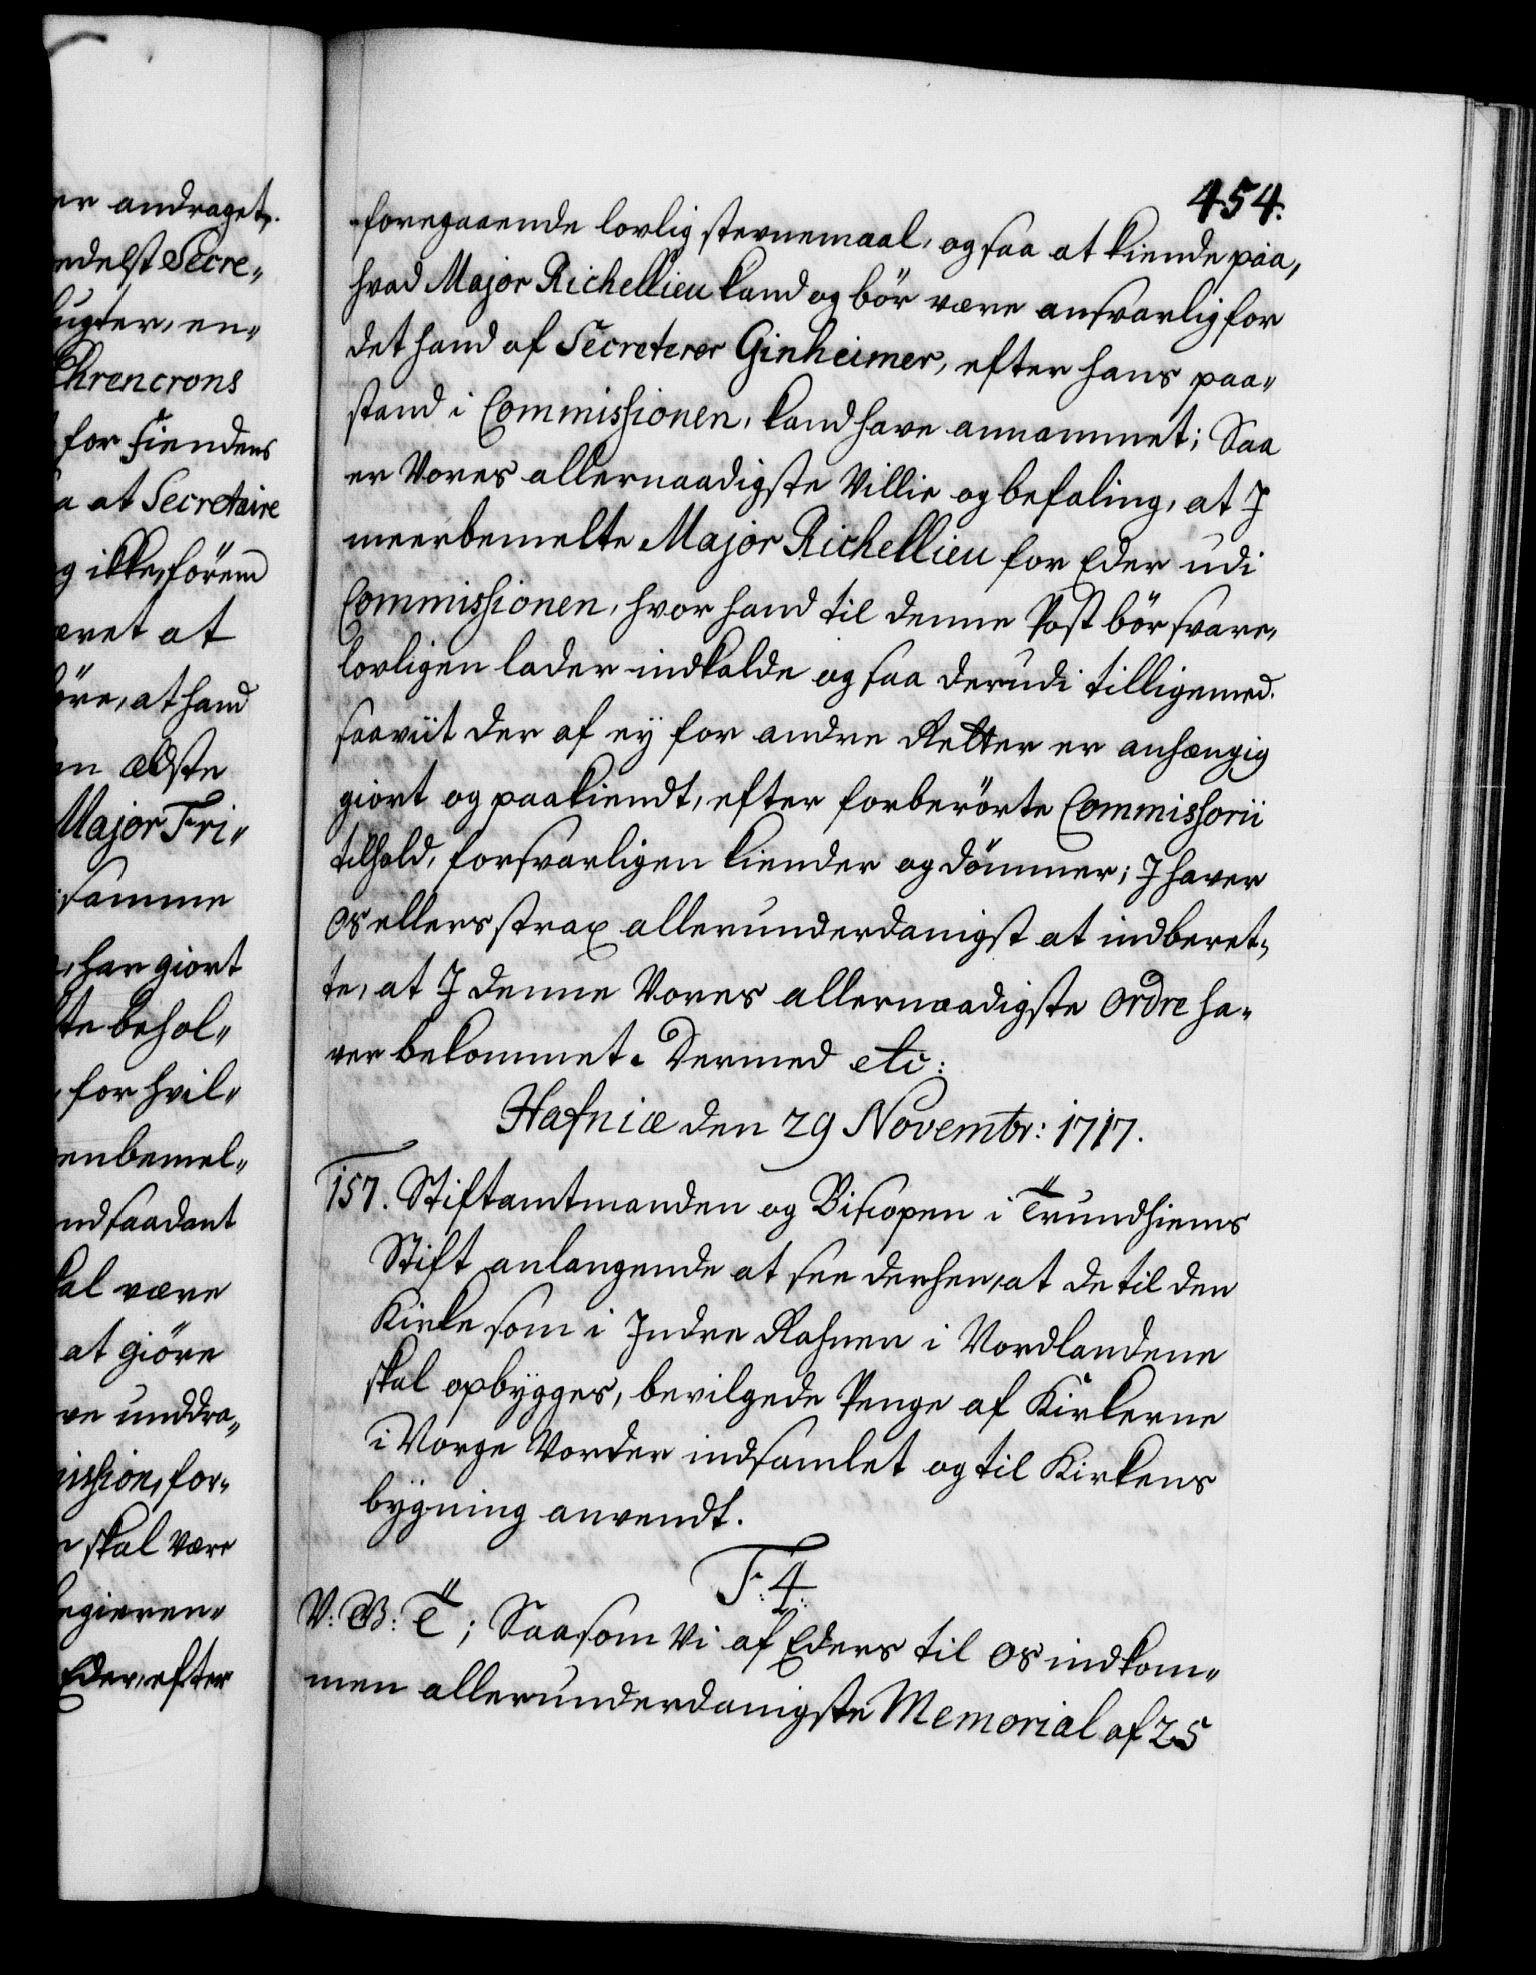 er andraget.
edelst Secre-
ugter, en-
Ehrencrons
for Fiendens
a at Secretaire
g ikke, förend
æret at
öre, at hand
en ældste
Major Fri-
samme
, har giort
te behol-
, for hvil-
enbemel-
nd saadant
kal være
at giöre
re unddra-
ission, for-
skal være
egieren-
Eder, efter
454.
foregaaende lovlig stevnemaal, og saa at kiende paa,
hvad Major Richellieu kand og bör være ansvarlig for
det hand af Secreterer Ginheimer, efter hans paa-
stand i Commissionen, kand have annammet; Saa
er Vores allernaadigste Villie og befaling, at J
meerbemelte Major Richellieu for Eder udi
Commissionen, hvor hand til denne Post bör svare,
lovligen lader indkalde og saa derudi tilligemed.
saaviit der af ey for andre Retter er anhængig
giort og paakiendt, efter forberörte Commissorii
tilhold, forsvarligen kiender og dömmer; J haver
os ellers strax allerunderdanigst at indberet-
te, at J denne Vores allernaadigste Ordre ha-
ver bekommet. Dermed etc:
Hafniæ den 29 Novembr: 1717.
157. Stiftamtmanden og Biscopen i Trundhiems
Stift anlangende at see derhen, at de til den
Kirke som i Indre Rahnen i Nordlandene
skal opbygges, bevilgede Penge af Kirkerne
i Norge Vorder indsamlet og til Kirkens
bygning anvendt.
F. 4.
V: G: T; Saasom Vi af Eders til os indkom-
men allerunderdanigste Memorial af 25